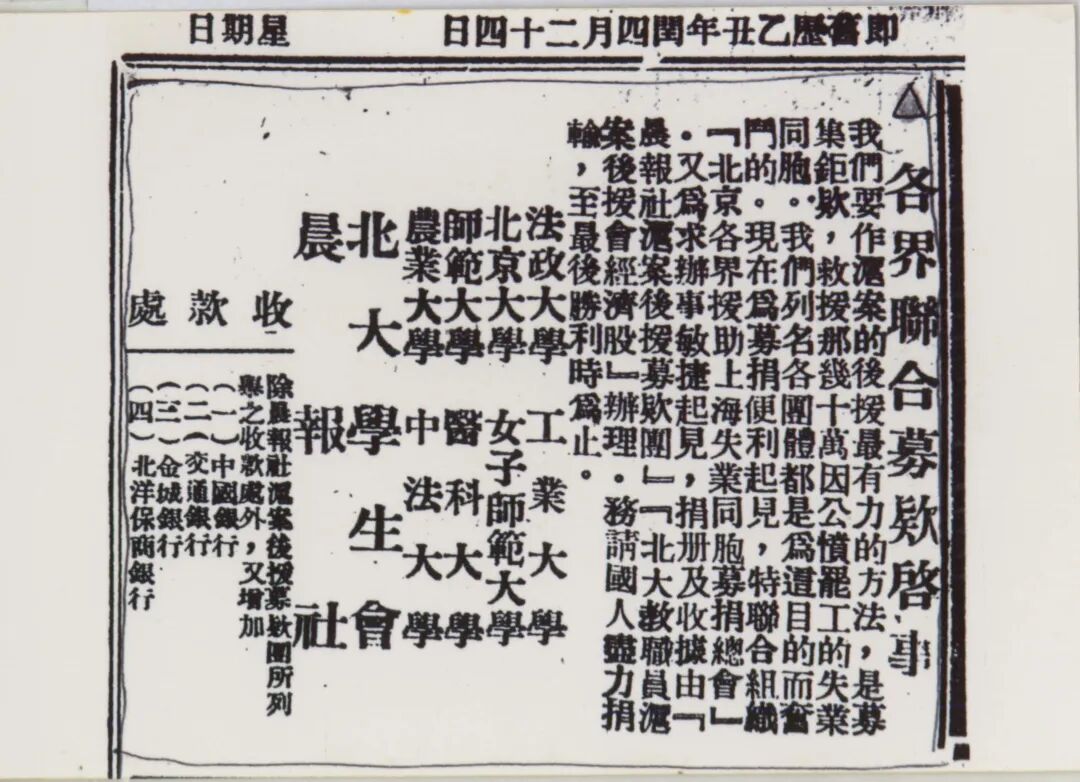 即舊歷乙丑年閏四月二十四日
星期日
各界聯合募欵啓事
我們要作滬案的後援最有力的方法，是募
集鉅欵，救援那幾十萬因公憤罷工的失業
同胞。我們列名各團體都是爲這目的而奮
鬥的。現在爲募捐便利起見，特聯合組織
『北京各界援助上海失業同胞募捐總會』
。又爲求辦事敏捷起見，捐册及收據由『
晨報社滬案後援募欵團』『北大教職員滬
案後援會經濟股』辦理。務請國人盡力捐
輸，至最後勝利時爲止。
法政大學 工業大學
北京大學 女子師範大學
師範大學 醫科大學
農業大學 中法大學
北大學生會
晨報社
收款處
除晨報社滬案後援募欵團所列
舉之收款處外，又增加
（一）中國銀行
（二）交通銀行
（三）金城銀行
（四）北洋保商銀行